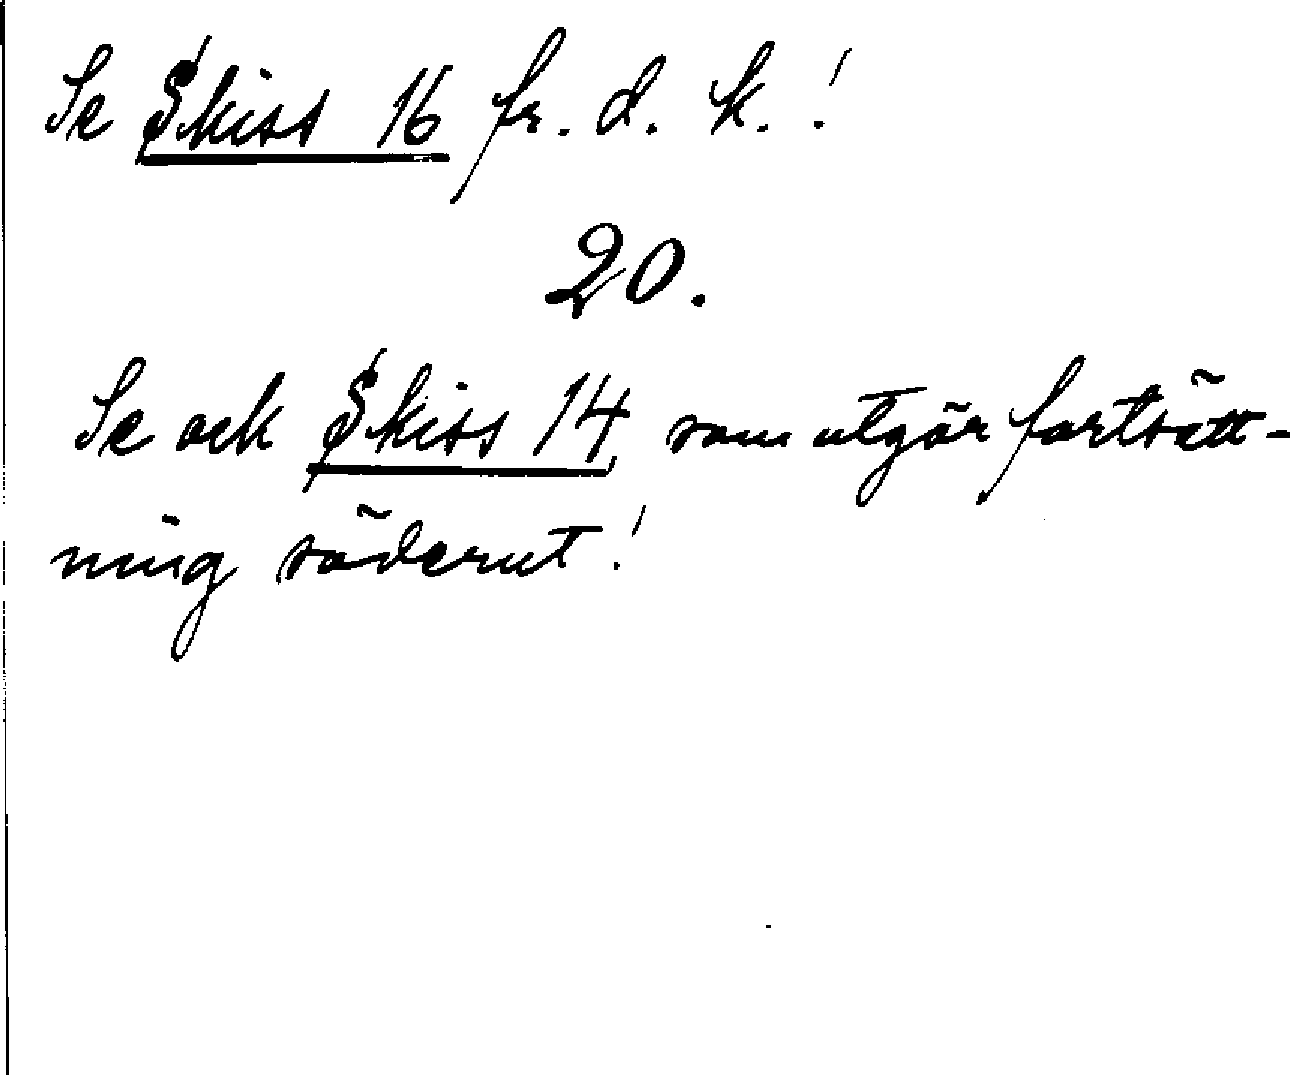 Se Skiss 16 fr. d. k.!
20.
Se ock Skiss 14, som utgör fortsätt-
ning söderut!